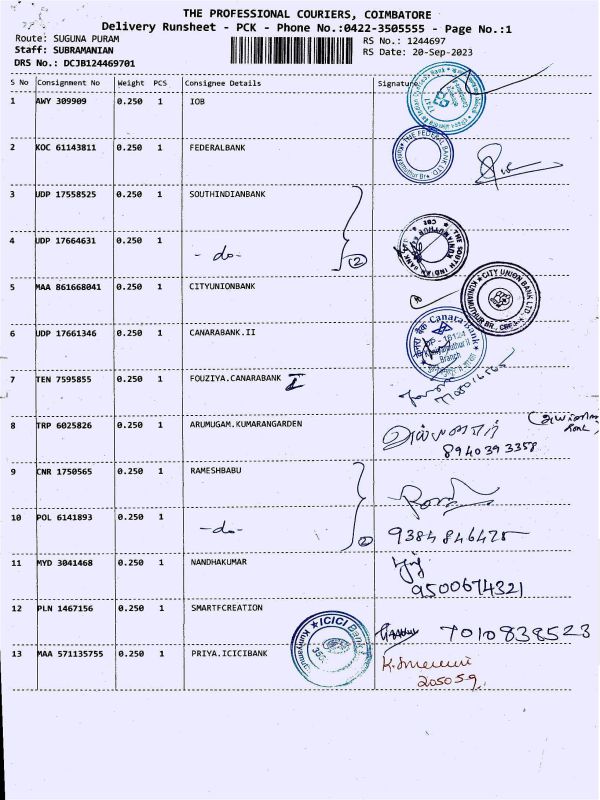 THE PROFESSIONAL COURIERS, COIMBATORE
Delivery Runsheet - PCK - Phone No.:0422-3505555 - Page No.:1
Route: SUGUNA PURAM RS No.: 1244697
Staff: SUBRAMANIAN RS Date: 20-Sep-2023
DRS No.: DCJB124469701
S No Consignment No Weight PCS Consignee Details Signature
1 AWY 309909 0.250 1 IOB
2 KOC 61143811 0.250 1 FEDERALBANK
THE FEDERAL BANK LTD.
3 UDP 17558525 0.250 1 SOUTHINDIANBANK
4 UDP 17664631 0.250 1 - do - 2
THE SOUTH INDIAN BANK
5 MAA 861668041 0.250 1 CITYUNIONBANK
CITY UNION BANK LTD.
6 UDP 17661346 0.250 1 CANARABANK.II
Canara Bank
DP - 16124
Branch
7 TEN 7595855 0.250 1 FOUZIYA.CANARABANK I
8 TRP 6025826 0.250 1 ARUMUGAM.KUMARANGARDEN
8940393358
9 CNR 1750565 0.250 1 RAMESHBABU
10 POL 6141893 0.250 1 - do - 2
9384846425
11 MYD 3041468 0.250 1 NANDHAKUMAR
9500674321
12 PLN 1467156 0.250 1 SMARTFCREATION 7010838523
ICICI Bank
13 MAA 571135755 0.250 1 PRIYA.ICICIBANK
205059